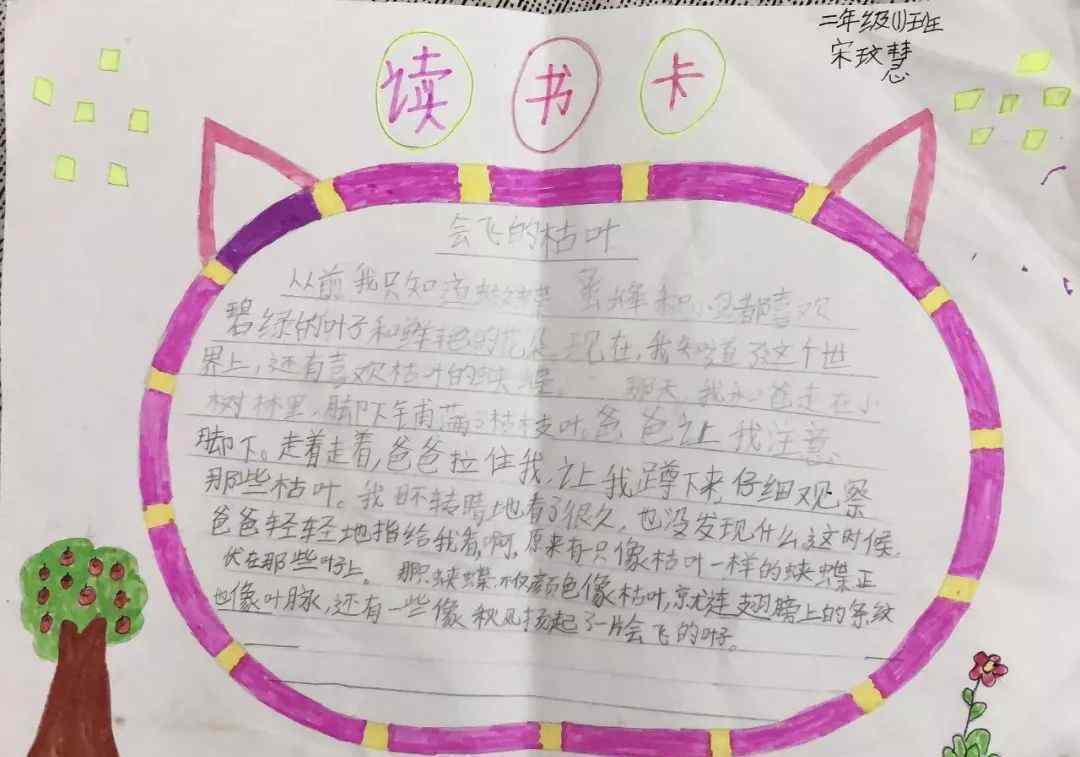 二年级(1)班
宋玟慧
读书卡
会飞的枯叶
从前我只知道蝴蝶 蜜蜂和小鸟都喜欢
碧绿的叶子和鲜艳的花朵,现在,我知道了这个世
界上,还有喜欢枯叶的蝴蝶。 那天,我和爸走在小
树林里,脚下铺满了枯枝叶,爸爸让我注意
脚下。走着走着,爸爸拉住我,让我蹲下来,仔细观察
那些枯叶。我目不转睛地看了很久,也没发现什么这时候,
爸爸轻轻地指给我看,啊,原来有只像枯叶一样的蛱蝶正
伏在那些叶子上。那只蛱蝶不仅颜色像枯叶,就连翅膀上的条纹
也像叶脉,还有一些像秋风扬起了一片会飞的叶子。